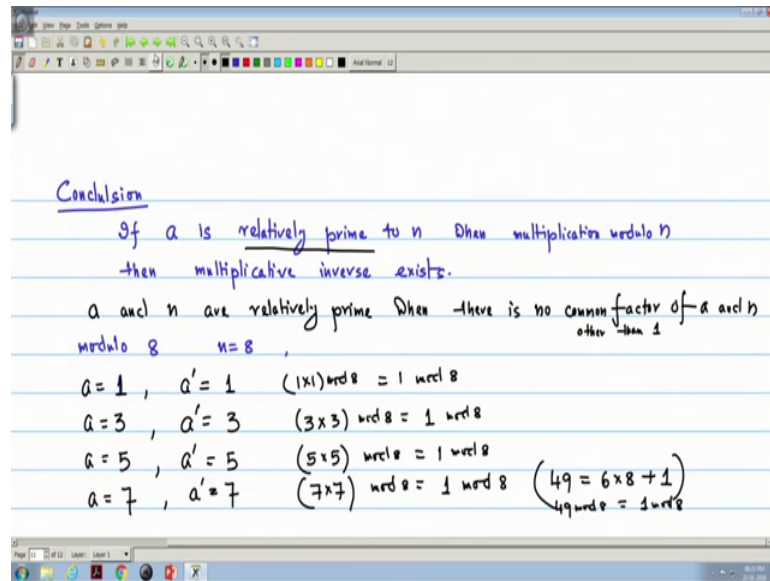 View Page Tools Options Help
Arial Normal 12
Conclulsion
If a is relatively prime to n When multiplication modulo n
then multiplicative inverse exists.
a and n are relatively prime When there is no common factor of a and n
other than 1
modulo 8 n=8 ,
a = 1 , a' = 1 (1x1) mod 8 = 1 mod 8
a = 3 , a' = 3 (3x3) mod 8 = 1 mod 8
a = 5 , a' = 5 (5x5) mod 8 = 1 mod 8
a = 7 , a' = 7 (7x7) mod 8 = 1 mod 8 (49 = 6x8+1)
49 mod 8 = 1 mod 8
Page 11 of 12 Layer: Layer 1